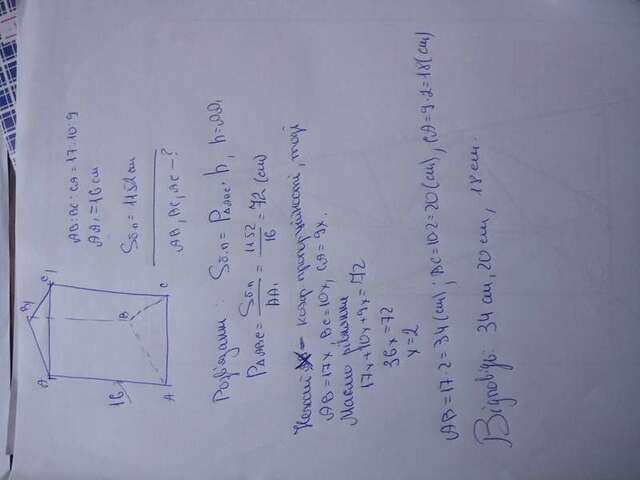 A₁ B₁ C₁
16
A B C
AB:BC:CA=17:10:9
AA₁=16 см
Sб.п=1152 см
AB, BC, AC-?
Розв'язання: Sб.п=P△ABC·h, h=AA₁
P△ABC=Sб.п/AA₁=1152/16=72 (см)
Нехай x- коеф. пропорційності, тоді
AB=17x, BC=10x, CA=9x.
Маємо рівняння
17x+10x+9x=72
36x=72
x=2
AB=17·2=34(см); BC=10·2=20(см), CA=9·2=18(см)
Відповідь: 34 см, 20 см, 18 см.